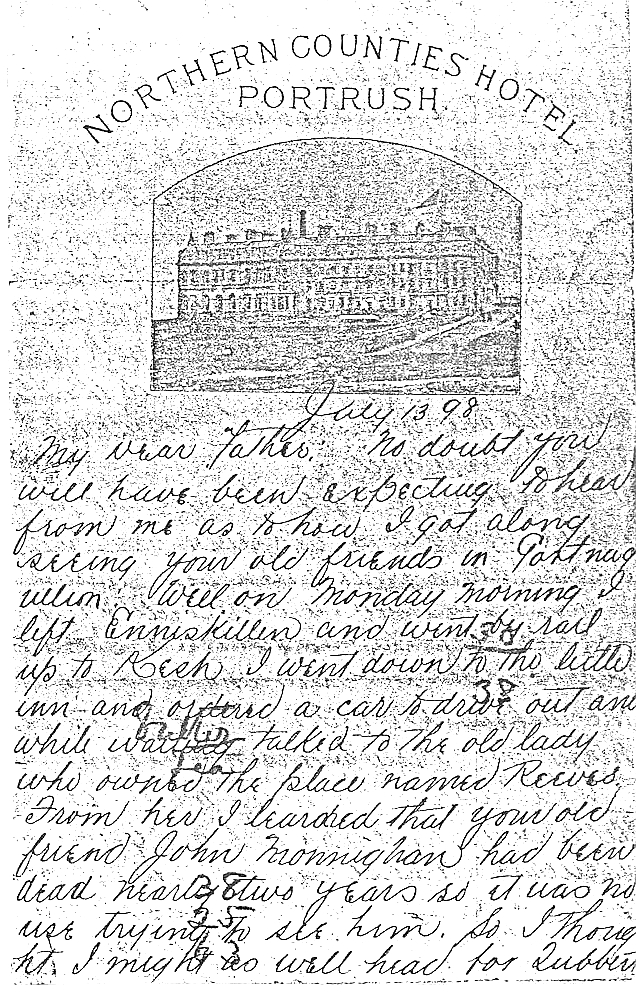 NORTHERN COUNTIES HOTEL
PORTRUSH.
July 13 98
My dear Father: No doubt you
will have been expecting to hear
from me as to how I got along
seeing your old friends in Gortnag
ullion. Well on Monday morning I
left Enniskillen and went by rail
up to Kesh. I went down to the little
inn and ordered a car to drive out and
while waiting talked to the old lady
who owned the place named Reeves.
From her I learned that your old
friend John Monnighan had been
dead nearly two years so it was no
use trying to see him. So I thoug
ht I might as well head for
38
38
Tea
28
25